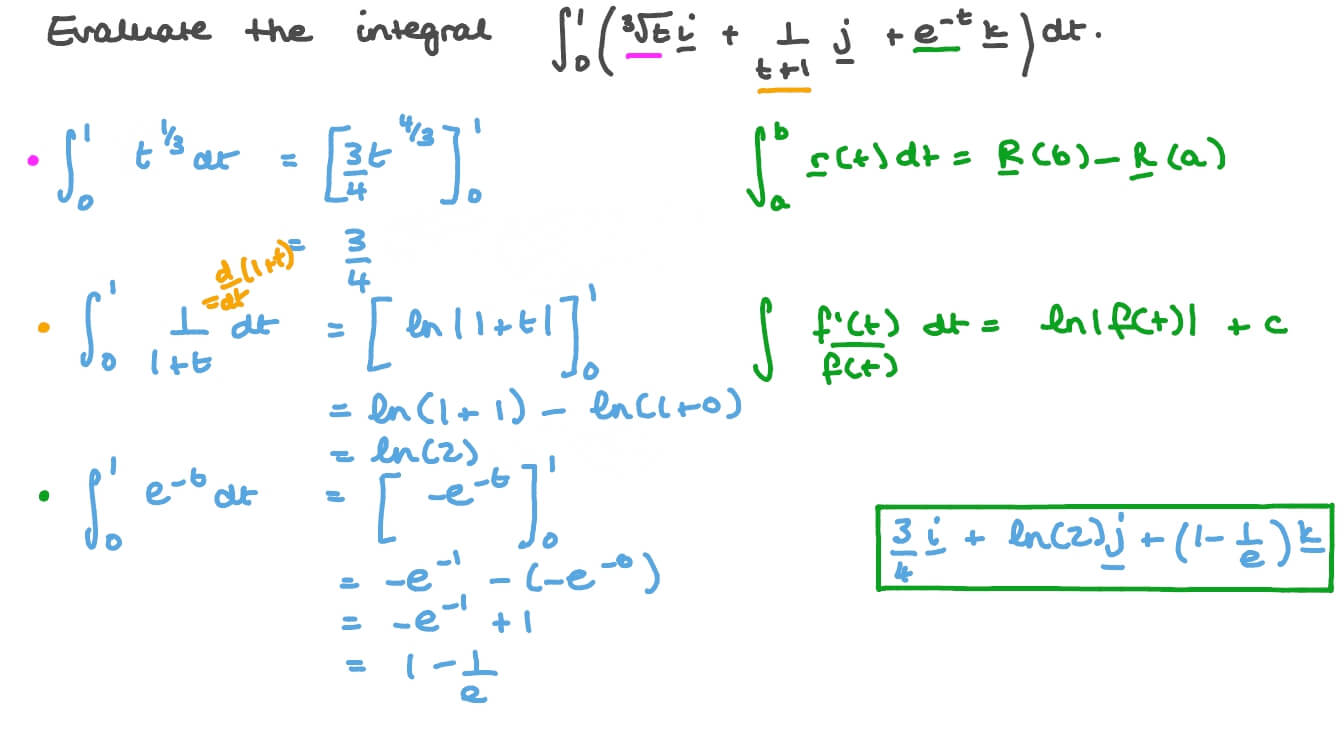 Evaluate the integral ∫₀¹ (∛t i + 1/(t+1) j + e^(-t) k) dt.
• ∫₀¹ t^(1/3) dt = [3/4 t^(4/3)]₀¹
= 3/4
∫ₐᵇ r(t) dt = R(b) - R(a)
d/dt (1+t) =
• ∫₀¹ 1/(1+t) dt = [ln|1+t|]₀¹
= ln(1+1) - ln(1+0)
= ln(2)
∫ f'(t)/f(t) dt = ln|f(t)| + c
• ∫₀¹ e^(-t) dt = [-e^(-t)]₀¹
= -e^(-1) - (-e^(-0))
= -e^(-1) + 1
= 1 - 1/e
3/4 i + ln(2) j + (1 - 1/e) k